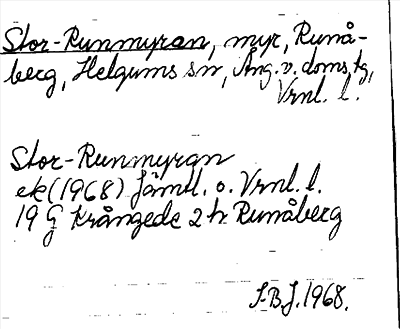 Stor-Runmyran, myr, Runå-
berg, Helgums sn, Ång. v. doms. tg,
Vrnl. l.
Stor-Runmyran
ek (1968) Jämtl. o. Vrnl. l.
19 G Krångede 2 h Runåberg
S.B.J. 1968.